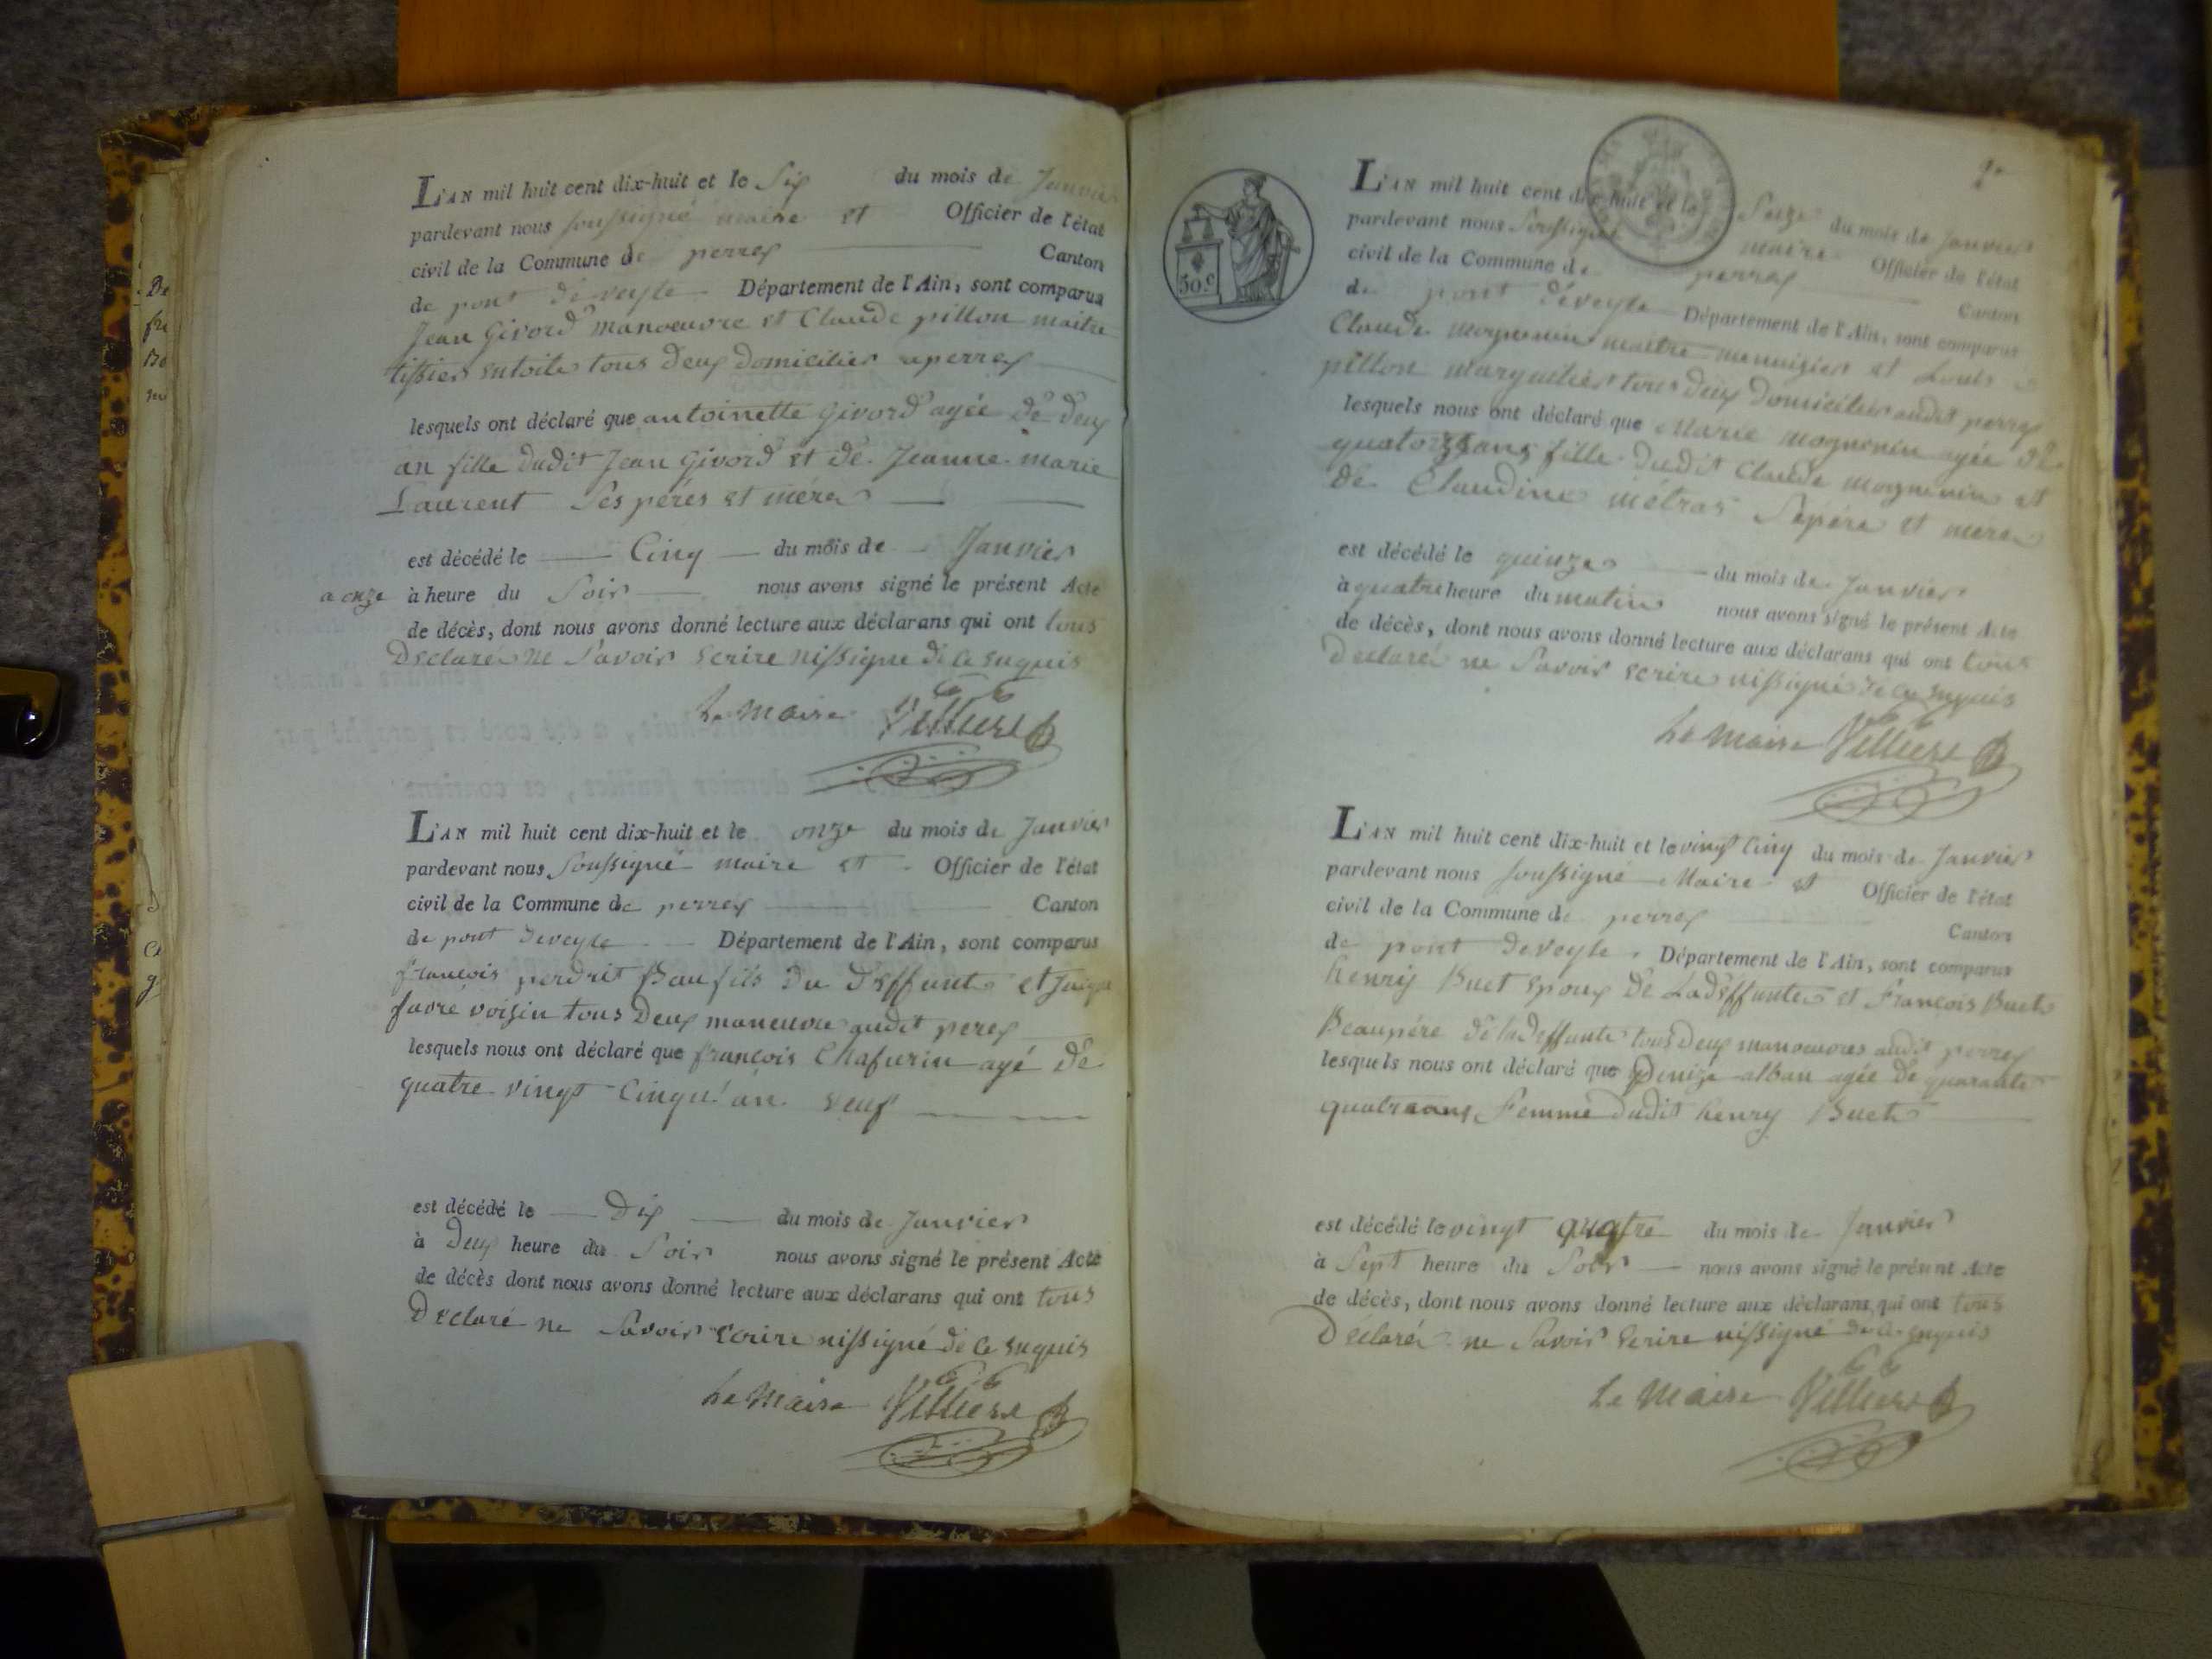 L'AN mil huit cent dix-huit et le Six du mois de Janvier
pardevant nous soussigné maire et Officier de l'état
civil de la Commune de perrex Canton
de pont deveyle Département de l'Ain, sont comparus
Jean Givord manoeuvre et Claude pillon maitre
tissier entoile tous deux domiciliés aperrex
lesquels ont déclaré que antoinette Givord agée de deux
an fille dudit Jean Givord et de Jeanne marie
Laurent Ses péres et mére
est décédé le Cinq du mois de Janvier
a onze à heure du Soir nous avons signé le présent Acte
de décès, dont nous avons donné lecture aux déclarans qui ont tous
Declaré ne Savoir Ecrire nissigne de ce enquis
Le Maire Villiere
L'AN mil huit cent dix-huit et le onze du mois de Janvier
pardevant nous Soussigné maire et Officier de l'état
civil de la Commune de perrex Canton
de pont deveyle Département de l'Ain, sont comparus
francois perdrit Beaufils du deffunt et
favre voisin tous Deux maneuvre audit perex
lesquels nous ont déclaré que francois Chafurin agé de
quatre vingt Cinqu. an. veuf
est décédé le Dix du mois de Janvier
à Deux heure du Soir nous avons signé le présent Acte
de décès dont nous avons donné lecture aux déclarans qui ont tous
Declaré ne Savoir Ecrire nissigné de ce enquis
Le Maire Villiere
2e
50.c
L'AN mil huit cent dix-huit et le Seize du mois de Janvier
pardevant nous Soussigné maire Officier de l'état
civil de la Commune de perrex Canton
de pont déveyle Département de l'Ain, sont comparus
Claude mognenin maitre menuizier et Louis
pillon marguilier tous deux domiciliés audit perrex
lesquels nous ont déclaré que Marie mognenin agée de
quatorze ans fille dudit Claude mognenin et
de Claudine métras Sepére et mere
est décédé le quinze du mois de Janvier
à quatre heure du matin nous avons signé le présent Acte
de décès, dont nous avons donné lecture aux déclarans qui ont tous
Declaré ne Savoir Ecrire nissigné de ce enquis
Le Maire Villiere
L'AN mil huit cent dix-huit et le vingt Cinq du mois de Janvier
pardevant nous soussigné Maire et Officier de l'état
civil de la Commune de perrex Canton
de pont deveyle Département de l'Ain, sont comparus
henry Buet Epoux de Ladeffunte et Francois Buet
Beaupére de ladeffunte tous Deux manoeuvres audit perrex
lesquels nous ont déclaré que Denize alban agée de quarante
quatre ans Femme dudit henry Buet
est décédé le vingt quatre du mois de Janvier
à Sept heure du Soir nous avons signé le présent Acte
de décès, dont nous avons donné lecture aux déclarans qui ont tous
Déclaré ne Savoir Ecrire nissigné de ce enquis
Le Maire Villiere